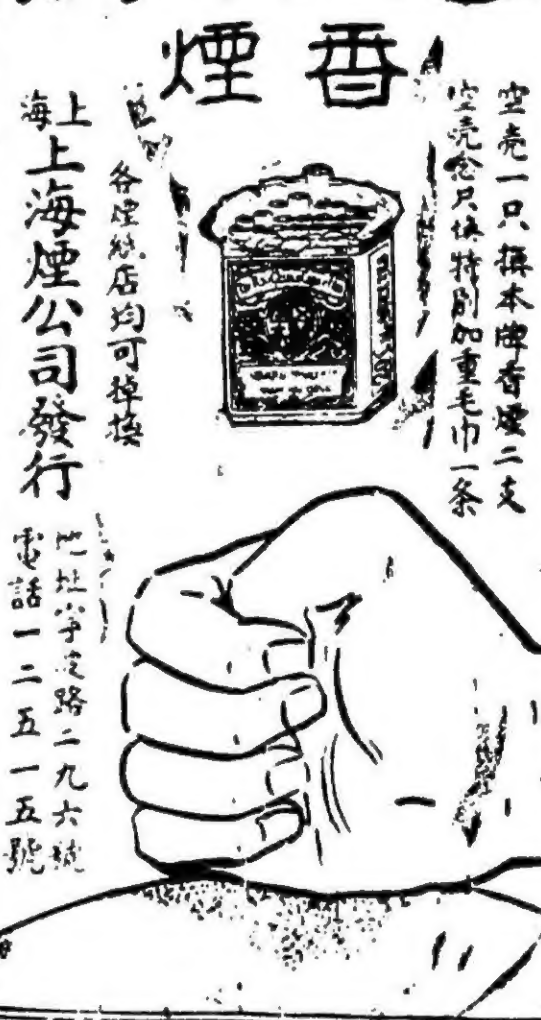 香煙
空壳一只換本牌香煙二支
空壳念只換特别加重毛巾一条
各煙紙店均可掉換
上海
上海煙公司發行
地址 路二九六號
電話一二五一五號